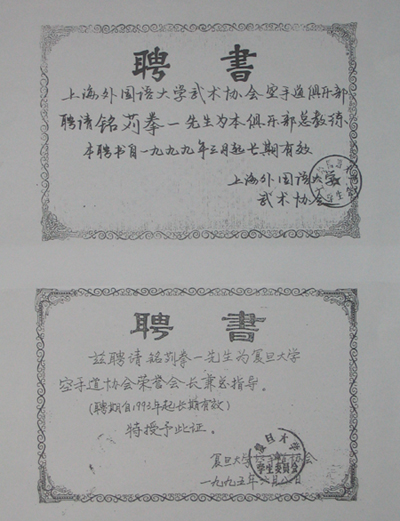 聘书
上海外国语大学武术协会空手道俱乐部
聘请铭苅拳一先生为本俱乐部总教练
本聘书自一九九九年三月起长期有效
上海外国语大学
武术协会
聘书
兹聘请铭苅拳一先生为复旦大学
空手道协会荣誉会长兼总指导。
(聘期自1993年起长期有效)
特授予此证。
复旦大学 协会
复旦大学
学生委员会
一九九五年 月 日